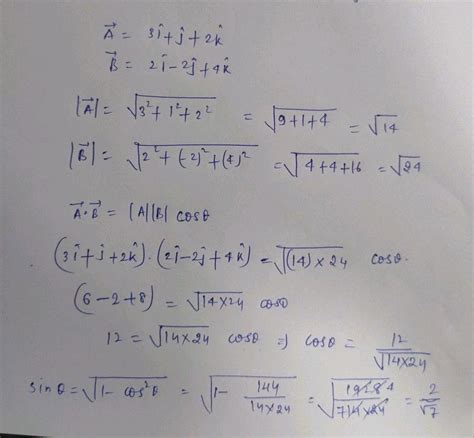 A⃗ = 3î + ĵ + 2k̂
B⃗ = 2î - 2ĵ + 4k̂
|A⃗| = √(3² + 1² + 2²) = √(9+1+4) = √14
|B⃗| = √(2² + (-2)² + (4)²) = √(4+4+16) = √24
A⃗·B⃗ = |A||B| cosθ
(3î + ĵ + 2k̂)·(2î - 2ĵ + 4k̂) = √((14) × 24) cosθ.
(6 - 2 + 8) = √(14×24) cosθ
12 = √(14×24) cosθ ⇒ cosθ = 12/√(14×24)
sinθ = √(1 - cos²θ) = √(1 - 144/(14×24)) = = 2/√7